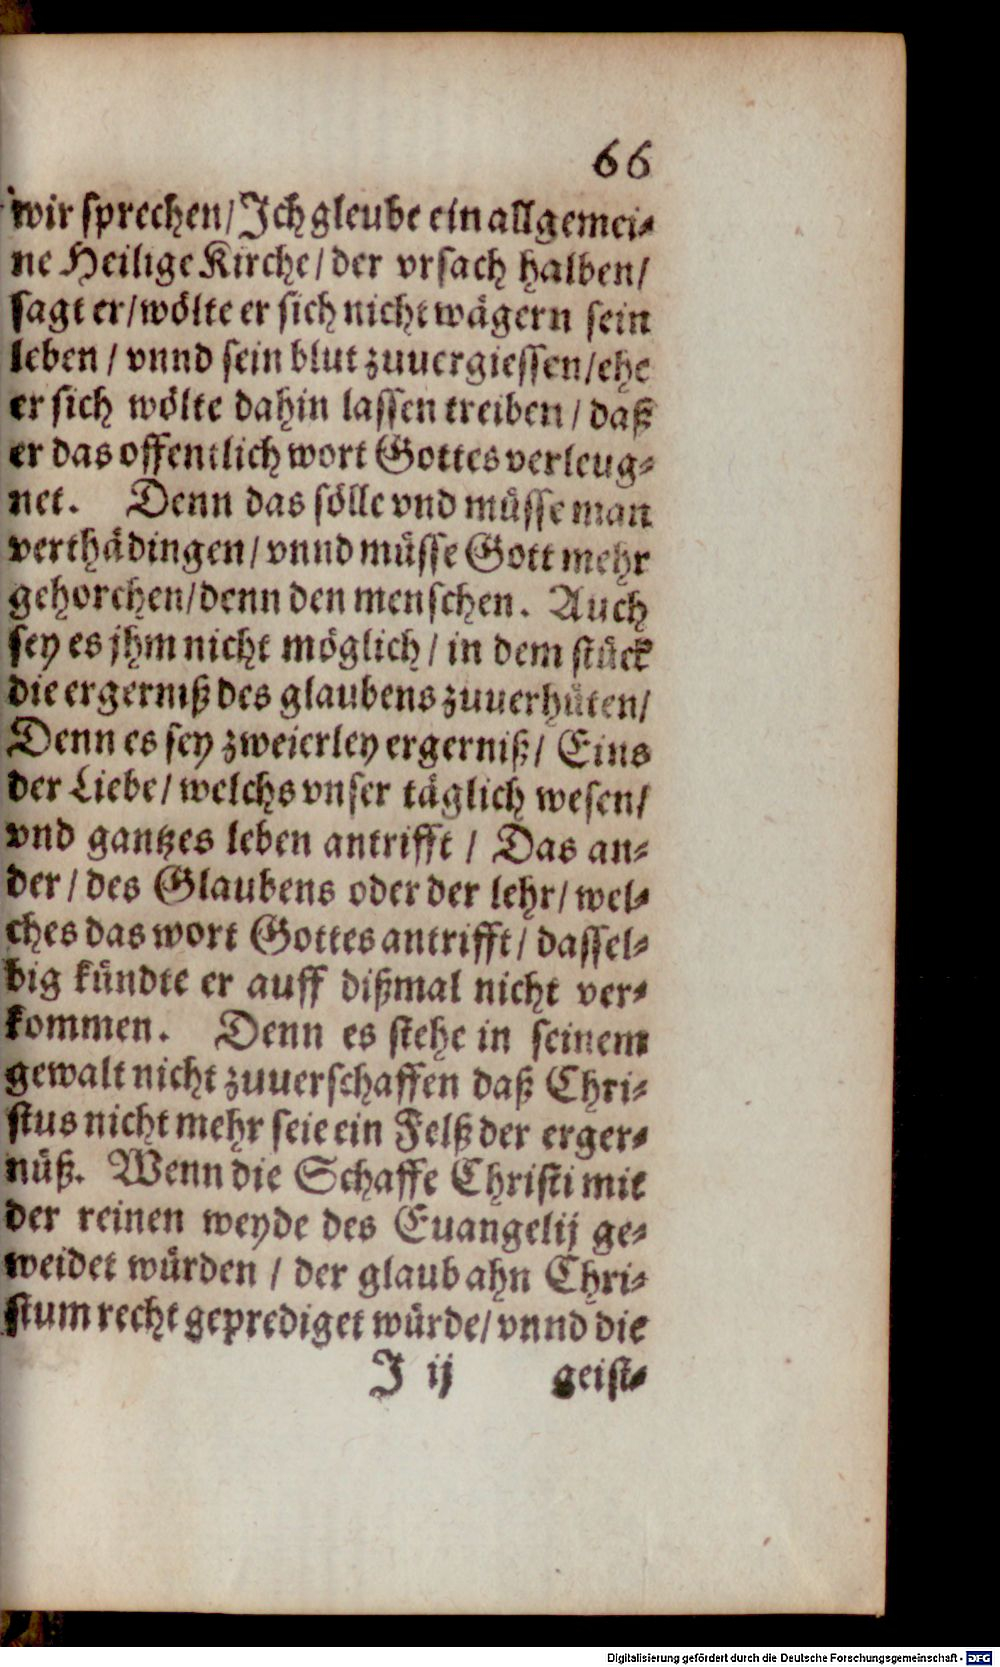 66
wir sprechen/ Jch gleube ein allgemei⸗
ne Heilige Kirche/ der vrsach halben/
sagt er/ wölte er sich nicht wägern sein
leben / vnnd sein blut zuuergiessen/ ehe
er sich wölte dahin lassen treiben / daß
er das offentlich wort Gottes verleug⸗
net. Denn das sölle vnd müsse man
verthädingen/ vnnd müsse Gott mehr
gehorchen/ denn den menschen. Auch
sey es jhm nicht möglich / in dem stück
die ergerniß des glaubens zuuerhüten/
Denn es sey zweierley ergerniß/ Eins
der Liebe/ welchs vnser täglich wesen/
vnd gantzes leben antrifft / Das an⸗
der / des Glaubens oder der lehr/ wel⸗
ches das wort Gottes antrifft/ dassel⸗
big kündte er auff dißmal nicht ver⸗
kommen. Denn es stehe in seinem
gewalt nicht zuuerschaffen daß Chri⸗
stus nicht mehr seie ein Felß der erger⸗
nüß. Wenn die Schaffe Christi mit
der reinen weyde des Euangelij ge⸗
weidet würden / der glaub ahn Chri⸗
stum recht geprediget würde/ vnnd die
J ij geist⸗
Digitalisierung gefördert durch die Deutsche Forschungsgemeinschaft - DFG